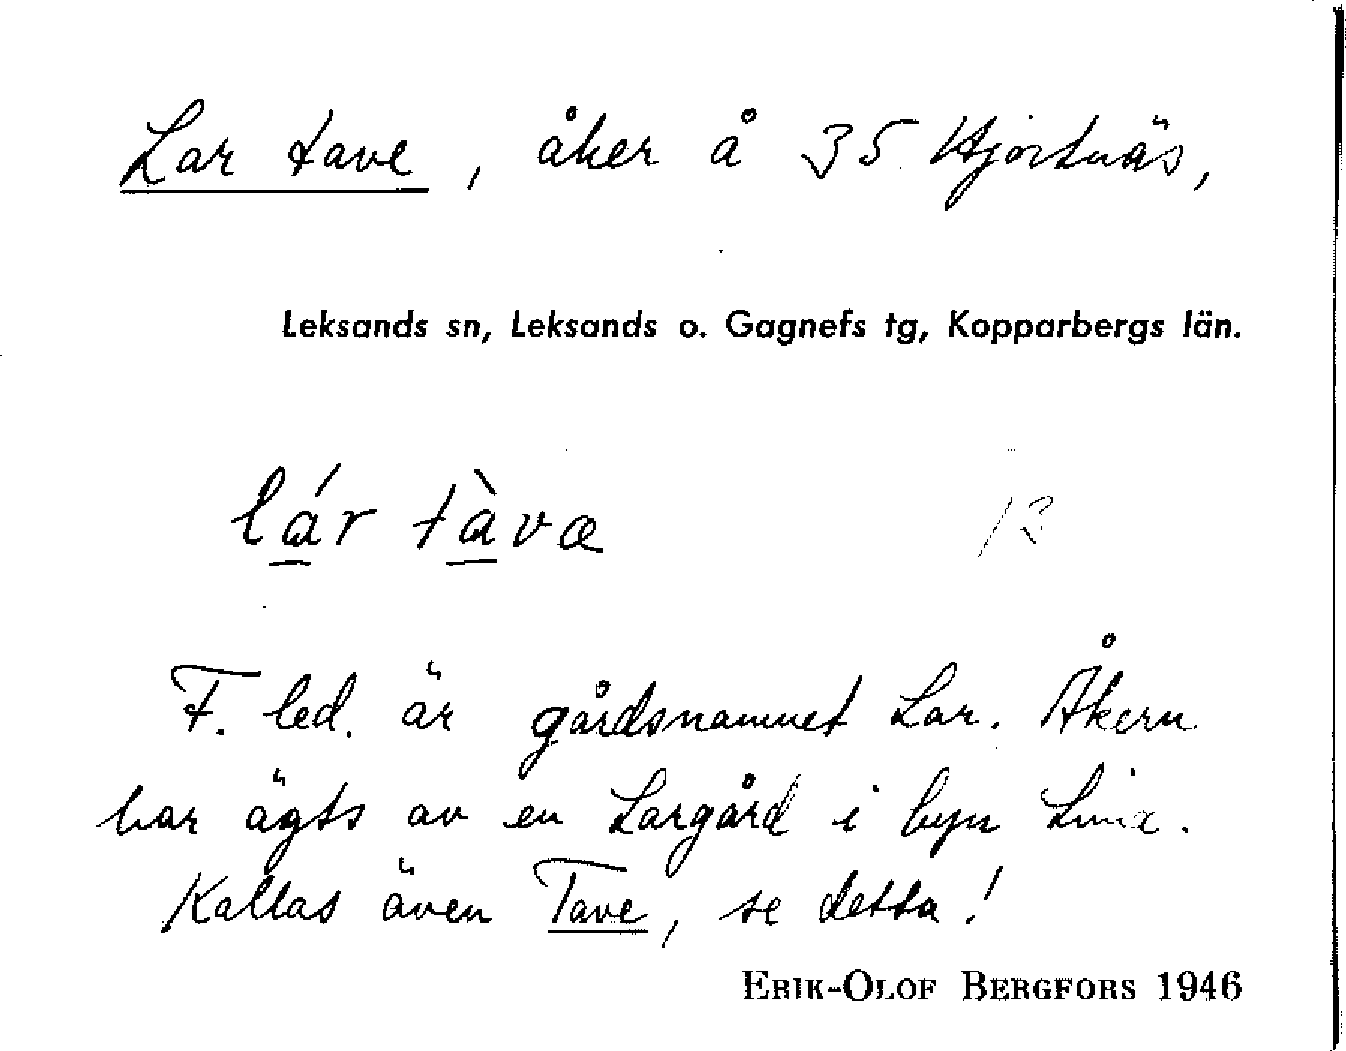 Lar tave, åker å 35 Hjortnäs,
Leksands sn, Leksands o. Gagnefs tg, Kopparbergs län.
lár tàvæ
13
F. led. är gårdsnamnet Lar. Åkern
har ägts av en Largård i byn Lima.
Kallas även Tave, se detta!
ERIK-OLOF BERGFORS 1946